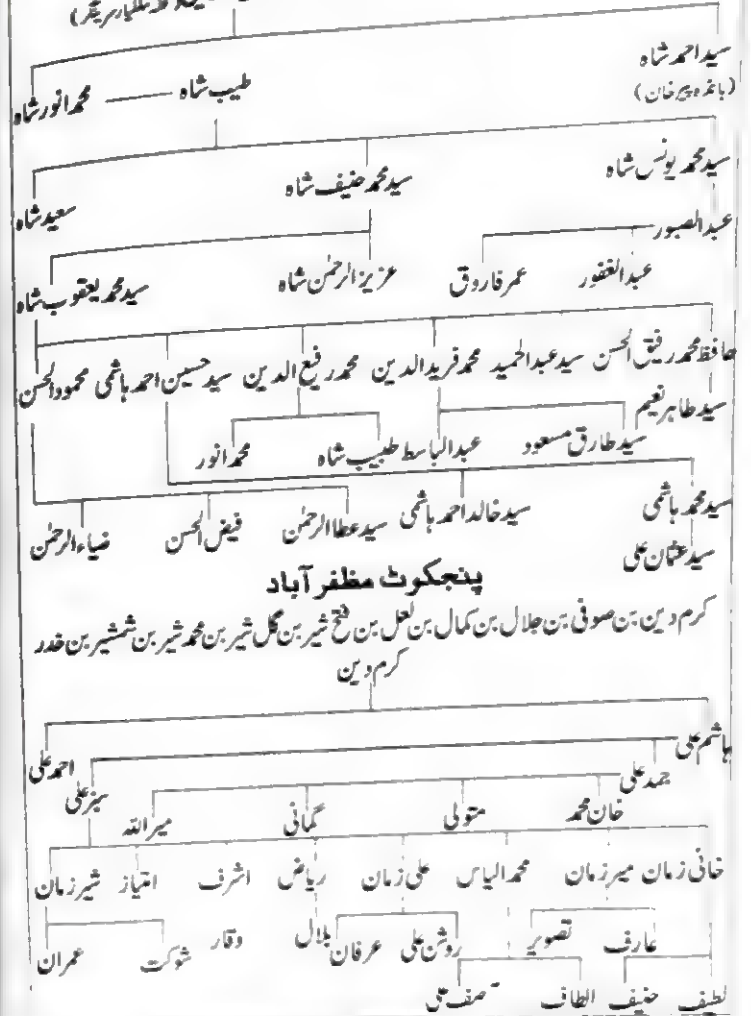 سید احمد شاہ
(بانڈہ پیر خان)
طیب شاہ
محمد انور شاہ
سید محمد یونس شاہ
سید محمد حنیف شاہ
سعید شاہ
عبدالصبور
عبدالغفور
عمر فاروق
عزیز الرحمٰن شاہ
سید محمد یعقوب شاہ
حافظ محمد رفیق الحسن سید عبدالحمید محمد فرید الدین محمد رفیع الدین سید حسین احمد ہاشمی محمود الحسن
سید طاہر نعیم
سید طارق مسعود عبدالباسط طبیب شاہ محمد انور
سید محمد ہاشمی سید خالد احمد ہاشمی سید عطا الرحمٰن فیض الحسن ضیاء الرحمٰن
سید عثمان علی
پنجکوٹ مظفر آباد
کرم دین بن صوفی بن جلال بن کمال بن لعل بن فتح شیر بن گل شیر بن محمد شیر بن شمشیر بن خدر
کرم دین
ہاشم علی
احمد علی
جمد علی
سبز علی
خان محمد متولی گمانی میر اللہ
خانی زمان میر زمان محمد الیاس علی زمان ریاض اشرف امتیاز شیر زمان
عارف تصویر روشن علی عرفان بلال وقار شوکت عمران
لطیف حنیف الطاف